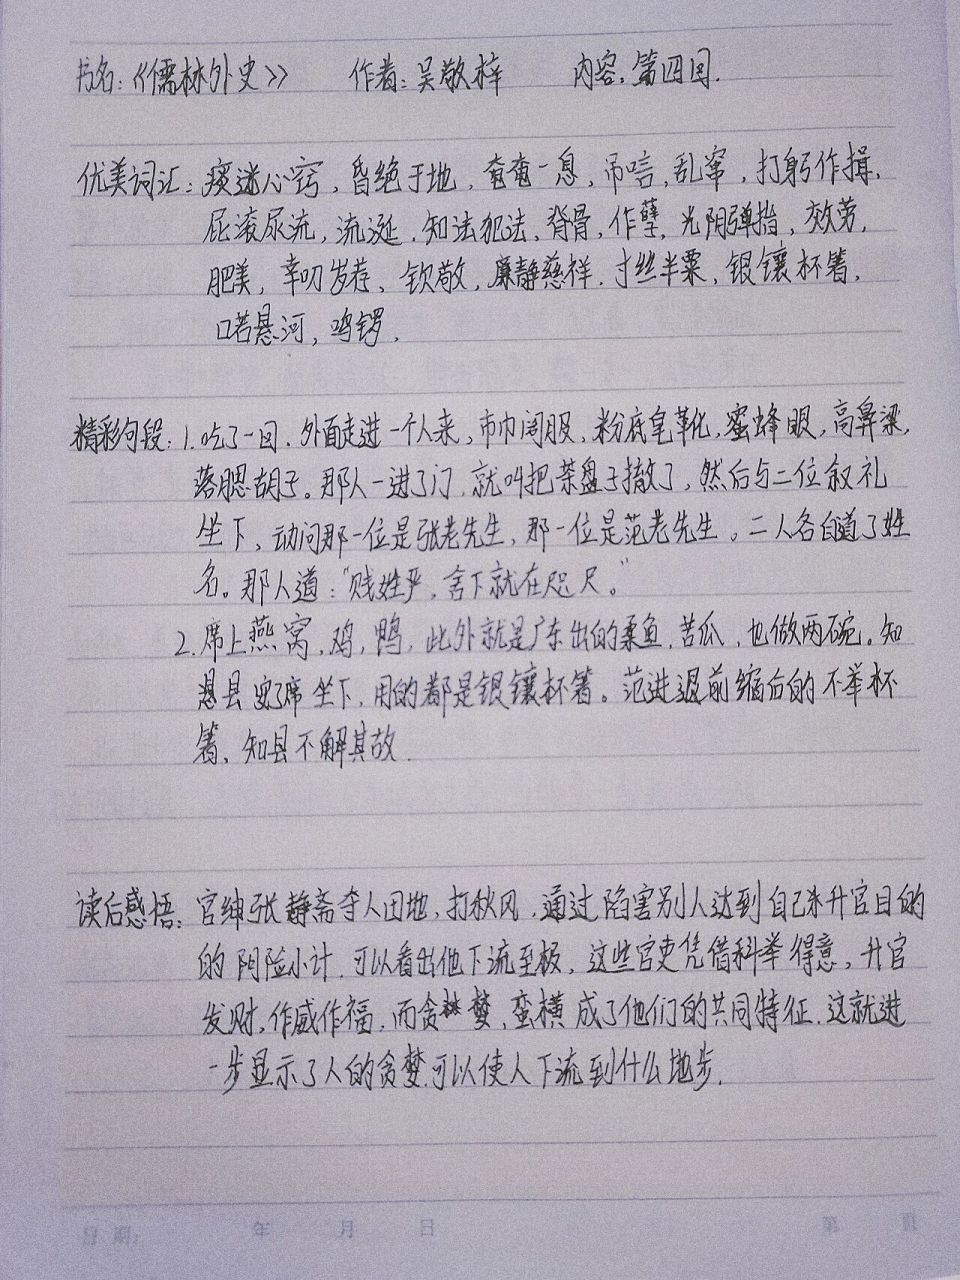 书名:《儒林外史》 作者:吴敬梓 内容:第四回.
优美词汇:痰迷心窍,昏绝于地,奄奄一息,吊唁,乱窜,打躬作揖,
屁滚尿流,流涎,知法犯法,脊骨,作孽,光阴弹指,效劳,
肥美,幸叨岁荐、钦敬,廉静慈祥.寸丝半粟,银镶杯箸,
口若悬河,鸣锣.
精彩句段:1.吃了一回.外面走进一个人来,方巾阔服,粉底皂靴,蜜蜂眼,高鼻梁,
落腮胡子。那人一进了门,就叫把茶盘子撤了,然后与二位叙礼
坐下,动问那一位是张老先生,那一位是范老先生。二人各自道了姓
名。那人道:“贱姓严,舍下就在咫尺。”
2.席上燕窝,鸡,鸭,此外就是广东出的柔鱼,苦瓜,也做两碗。知
县安了席坐下,用的都是银镶杯箸。范进退前缩后的不举杯
箸,知县不解其故.
读后感悟:官绅张静斋夺人田地,打秋风,通过陷害别人达到自己升官目的
的阴险小计.可以看出他下流至极,这些官吏凭借科举得意,升官
发财,作威作福,而贪婪,蛮横成了他们的共同特征.这就进
一步显示了人的贪婪可以使人下流到什么地步.
日期: 年 月 日 第 页